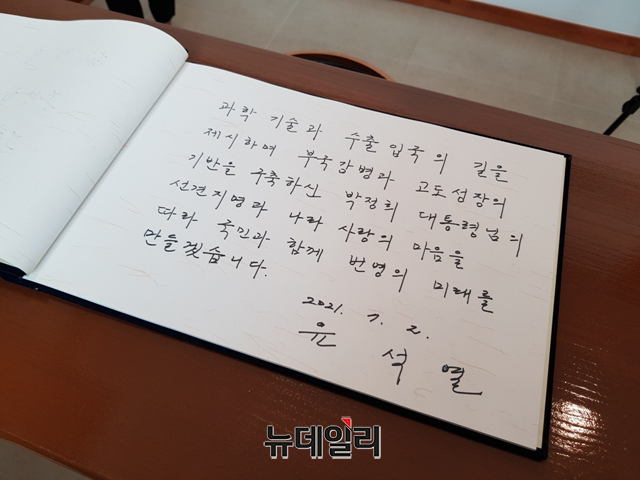 과학 기술과 수출 입국의 길을
제시하며 부국강병과 고도성장의
기반을 구축하신 박정희 대통령님의
선견지명과 나라 사랑의 마음을
따라 국민과 함께 번영의 미래를
만들겠습니다.
2021. 7. 2.
윤 석 열
뉴데일리